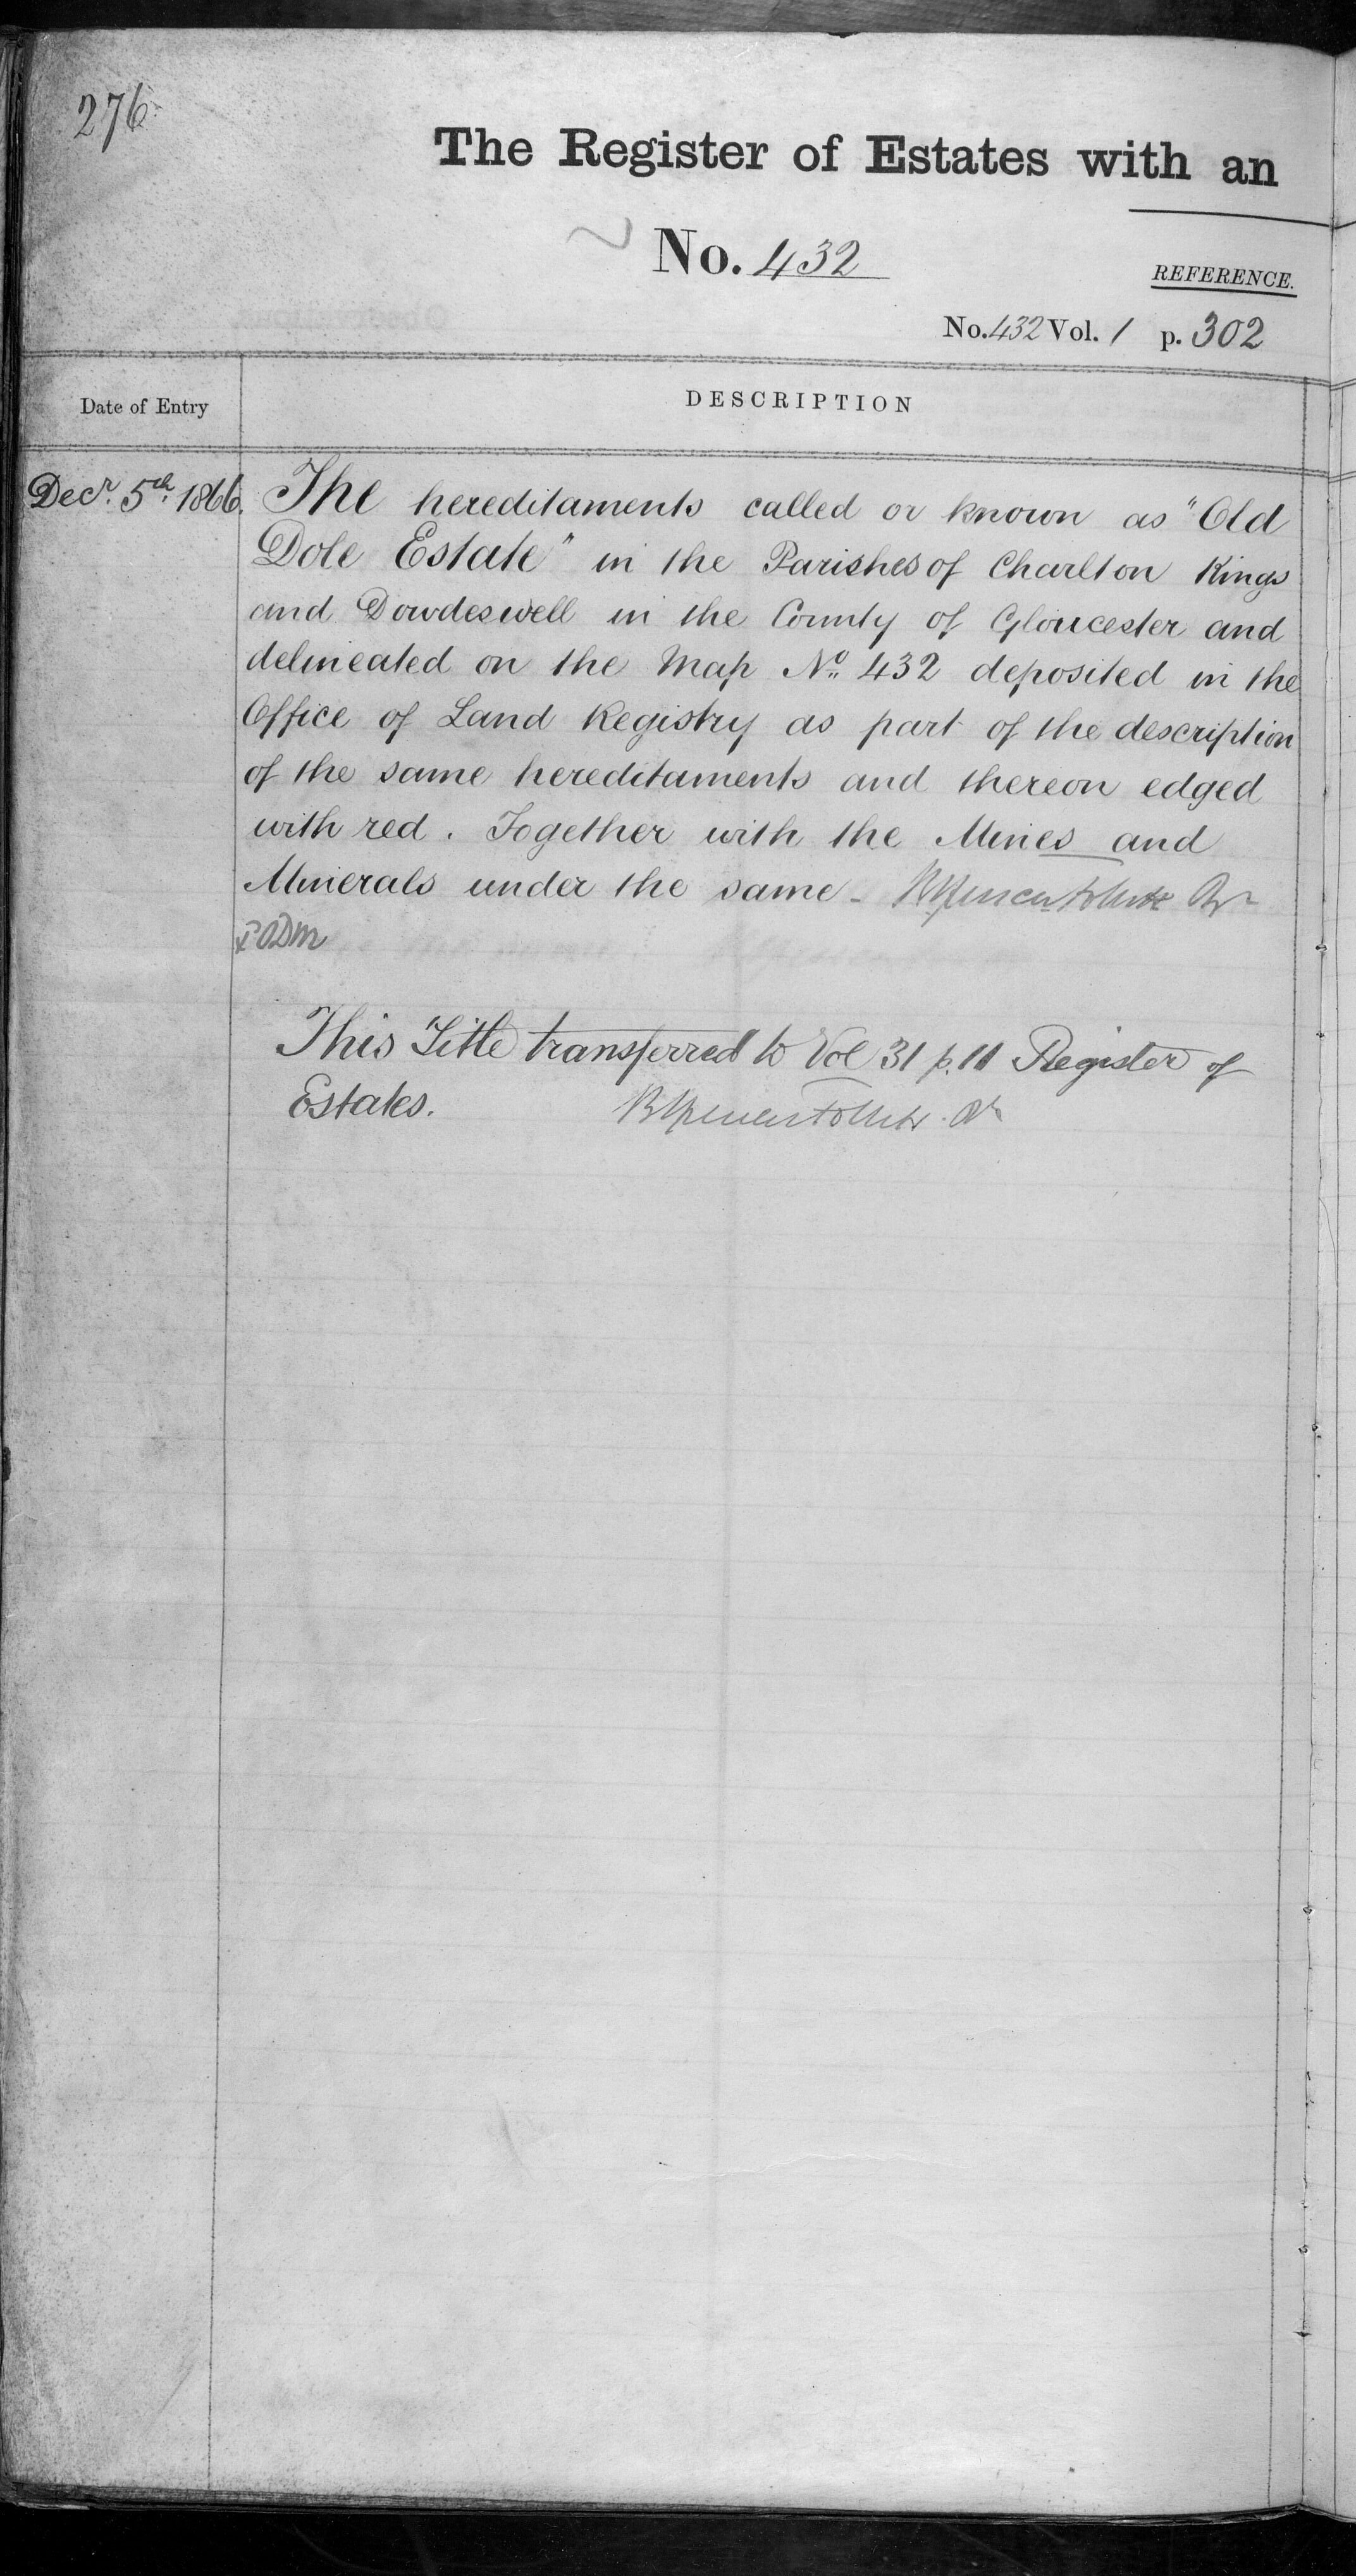 276.
The Register of Estates with an
No. 432
REFERENCE.
No. 432 Vol. 1 p. 302
Date of Entry
DESCRIPTION
Decr. 5th. 1866. The hereditaments called or known as "Old
Dole Estate" in the Parishes of Charlton Kings
and Dowdeswell in the County of Gloucester and
delineated on the Map No. 432 deposited in the
Office of Land Registry as part of the description
of the same hereditaments and thereon edged
with red. Together with the Mines and
Minerals under the same -
This Title transferred to Vol 31 p. 11 Register of
Estates.